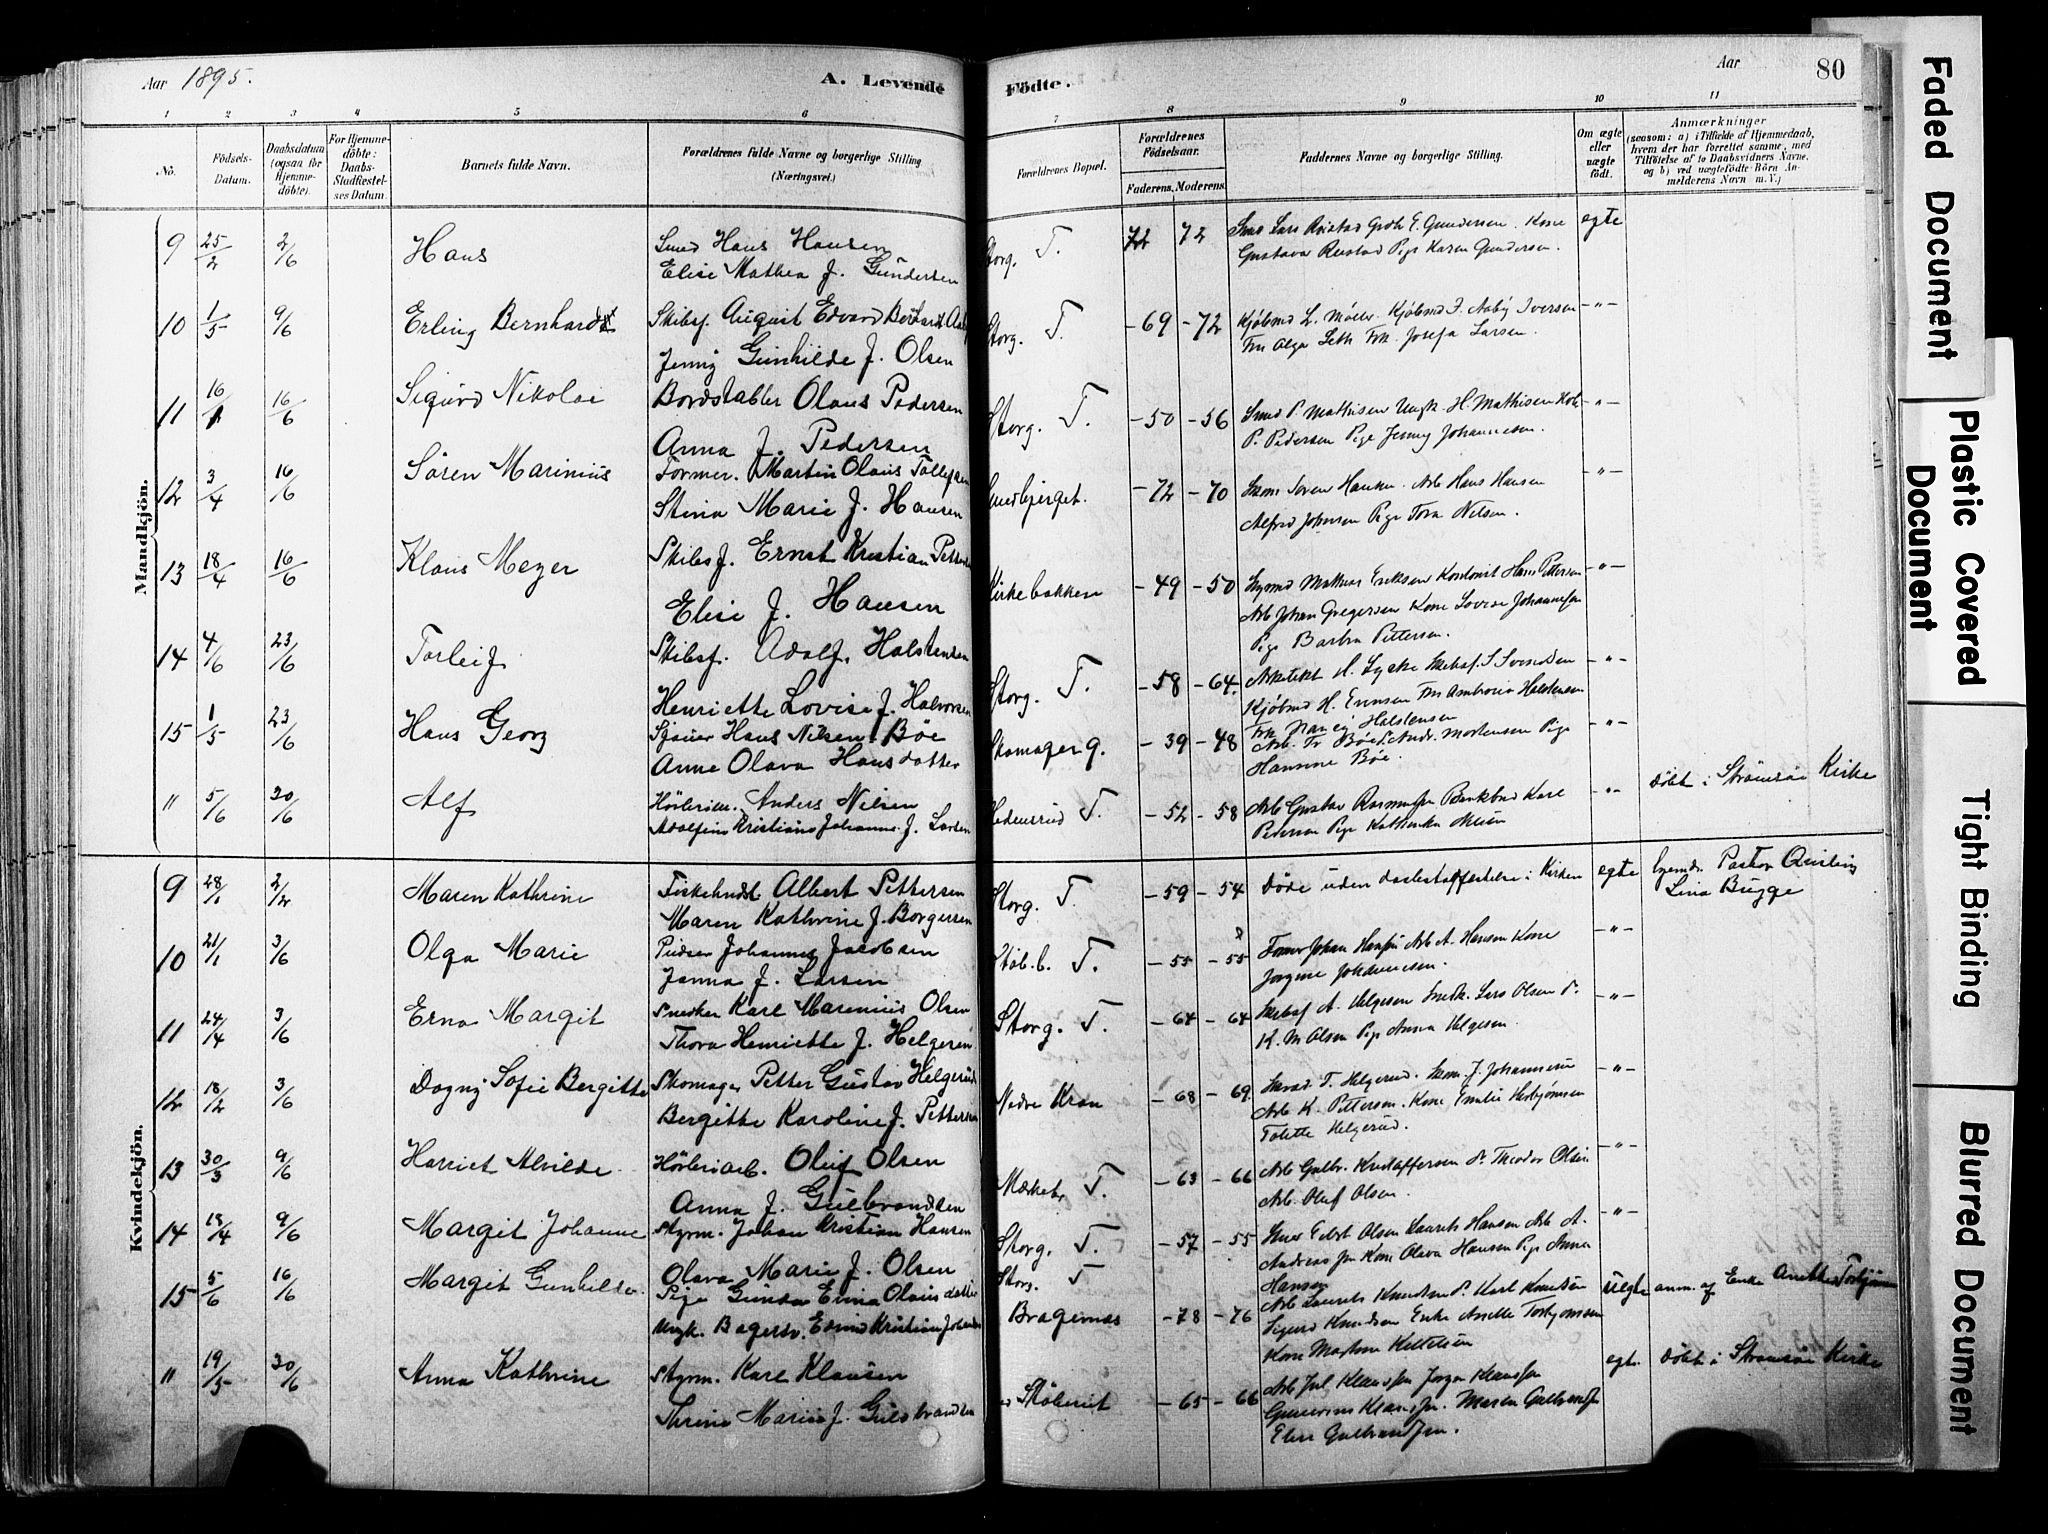 Aar 1895.
A. Levende Födte.
Aar
80
1 2 3 4 5 6 7 8 9 10 11
No.
Födsels-Datum.
Daabsdatum (ogsaa for Hjemmedöbte).
For Hjemmedöbte: Daabs-Stadfæstelses Datum.
Barnets fulde Navn.
Forældrenes fulde Navne og borgerlige Stilling (Næringsvei.)
Forældrenes Bopæl.
Forældrenes Födselsaar.
Faderens. Moderens.
Faddernes Navne og borgerlige Stilling.
Om ægte eller uægte födt.
Anmærkninger
(saasom: a) i Tilfælde af Hjemmedaab, hvem der har forrettet samme, med Tilföielse af to Daabsvidners Navne, og b) ved uægtefödte Börn Anmelderens Navn m. V.)
Mandkjön.
9 25/2 2/6 Hans
Smed Hans Hansen
Elise Mathea f. Gundersen
Storg. T. 72 72
Smed Lars Ruistad E. Gundersen. Kone
Gustava Ruistad Pige Karen Gundersen.
egte
10 1/5 9/6 Erling Bernhardt
Skibsf. August Edvard
Jenny Gunhilde f. Olsen
Storg. T. -69 -72
Kjöbmd L. Möller. Kjöbmd J. Aaby Iversen
Fru Olga Frk. Josefa Larsen.
-"-
11 16/1 16/6 Sigurd Nikolai
Bordstabler Olaus Pedersen
Anna J. Pedersen
Storg. T. -50 -56
Smed P. Mathisen Ungk. H. Mathisen
P. Pedersen Pige Jenny Johannesen.
-"-
12 3/4 16/6 Sören Marinius
Former. Martin Olaus Tollefsen
Stina Marie J. Hansen
-72 -70
Skom Soren Hansen. Arb Hans Hansen
Alfred Johnsen Pige Tora Nilsen.
-"-
13 18/4 16/6 Klaus Meyer
Skibsf. Ernst Kristian
Elise J. Hansen
Kirkebakken -49 -50
Mathias Eriksen Hans Pettersen
Arb Johan Gregersen Kone Lovise Johannesen
Pige Barbra Pettersen.
-"-
14 4/6 23/6 Torleif
Skibsf. Adolf. Halstensen
Henriette Lovise J. Halvorsen
Storg. T. -58 -64.
Arkitekt H. Lycke Skibsf. S Svendsen
Kjöbmd H. Evensen Fru Ambrosia Halstensen
Frk Halstensen
-"-
15 1/5 23/6 Hans Georg
Sjouer Hans Nilsen Böe
Anne Olava Hansdatter
Skomagerg. -39 -48
Arb. Fr Böe Andr. Mortensen Pige
Hansine Böe.
-"-
" 5/6 30/6 Alf
Anders Nilsen
Adolfine Kristiane Johanne J. Larsen
Hedensrud T. -52 -58
Arb Gustav Rasmussen Karl
Pedersen Pige Kathinka
-"- Döbt i Strömsöe Kirke
Kvindekjön.
9 28/1 2/2 Maren Kathrine
Fiskehndl Albert Pettersen
Maren Kathrine J. Borgersen
Storg. T. -59 -54
Döde uden daabsstadfestelse i Kirken
egte hjemdr. Pastor Quisling
Lina Bugge
10 21/1 3/6 Olga Marie
Johannes Jacobsen
Janna J. Larsen
T. -55 -55
Former Johan Hansen Arb A. Hansen Kone
Jorgine Johannesen.
-"-
11 24/14 3/6 Erna Margit
Snedker Karl Marinius Olsen
Thora Henriette J. Helgesen
Storg. T. -64 -64
Skibsf A. Helgesen Snedk. Lars Olsen P.
K. M. Olsen Pige Anna Helgesen.
-"-
12 18/2 3/6 Dagny Sofie Bergitte
Skomager Petter Gustav Helgerud
Bergitte Karoline J. Pettersen
Nedre Kran -68 -69.
T. Helgerud. Skom. J. Johannesen
Arb K. Pettersen. Kone Emilie
Tolette Helgerud.
-"-
13 30/3 9/6 Harriet Alvilde
Hövleriarb. Oluf Olsen
Anna J. Gulbrandsen
T. -63 -66
Arb Gulbr. Kristoffersen P. Theodor Olsen
Arb. Oluf Olsen.
-"-
14 18/4 9/6 Margit Johanne
Styrm. Johan Kristian Hansen
Olava Marie J. Olsen
Storg. T. -57 -55
Olsen Laurits Hansen Arb A.
Andreassen Kone Olava Hansen Pige Anna
Hansen
-"-
15 5/6 16/6 Margit Gunhilde
Pige Gunda Emma Olausdatter
Ungk. Bagersv. Kristian
Storg. T
Bragernæs -78 -76
Arb Laurits Knudsen P. Karl Knudsen
Sigurd Knudsen Enke Anette Torbjornsen
Kone Kittelsen
uegte anm. af Enke Anette Torbjornsen
" 19/5 30/6 Anna Kathrine
Styrm. Karl Klausen
Thrine Marie J. Gulbrandsen
-65 -66
Arb Jul Klaussen Jorgen Klaussen
Klaussen. Maren Gulbrandsen
Elise Gulbrandsen.
egt. Döbt i Strömsöe Kirke
Faded Document
Plastic Covered Document
Tight Binding
Blurred Document